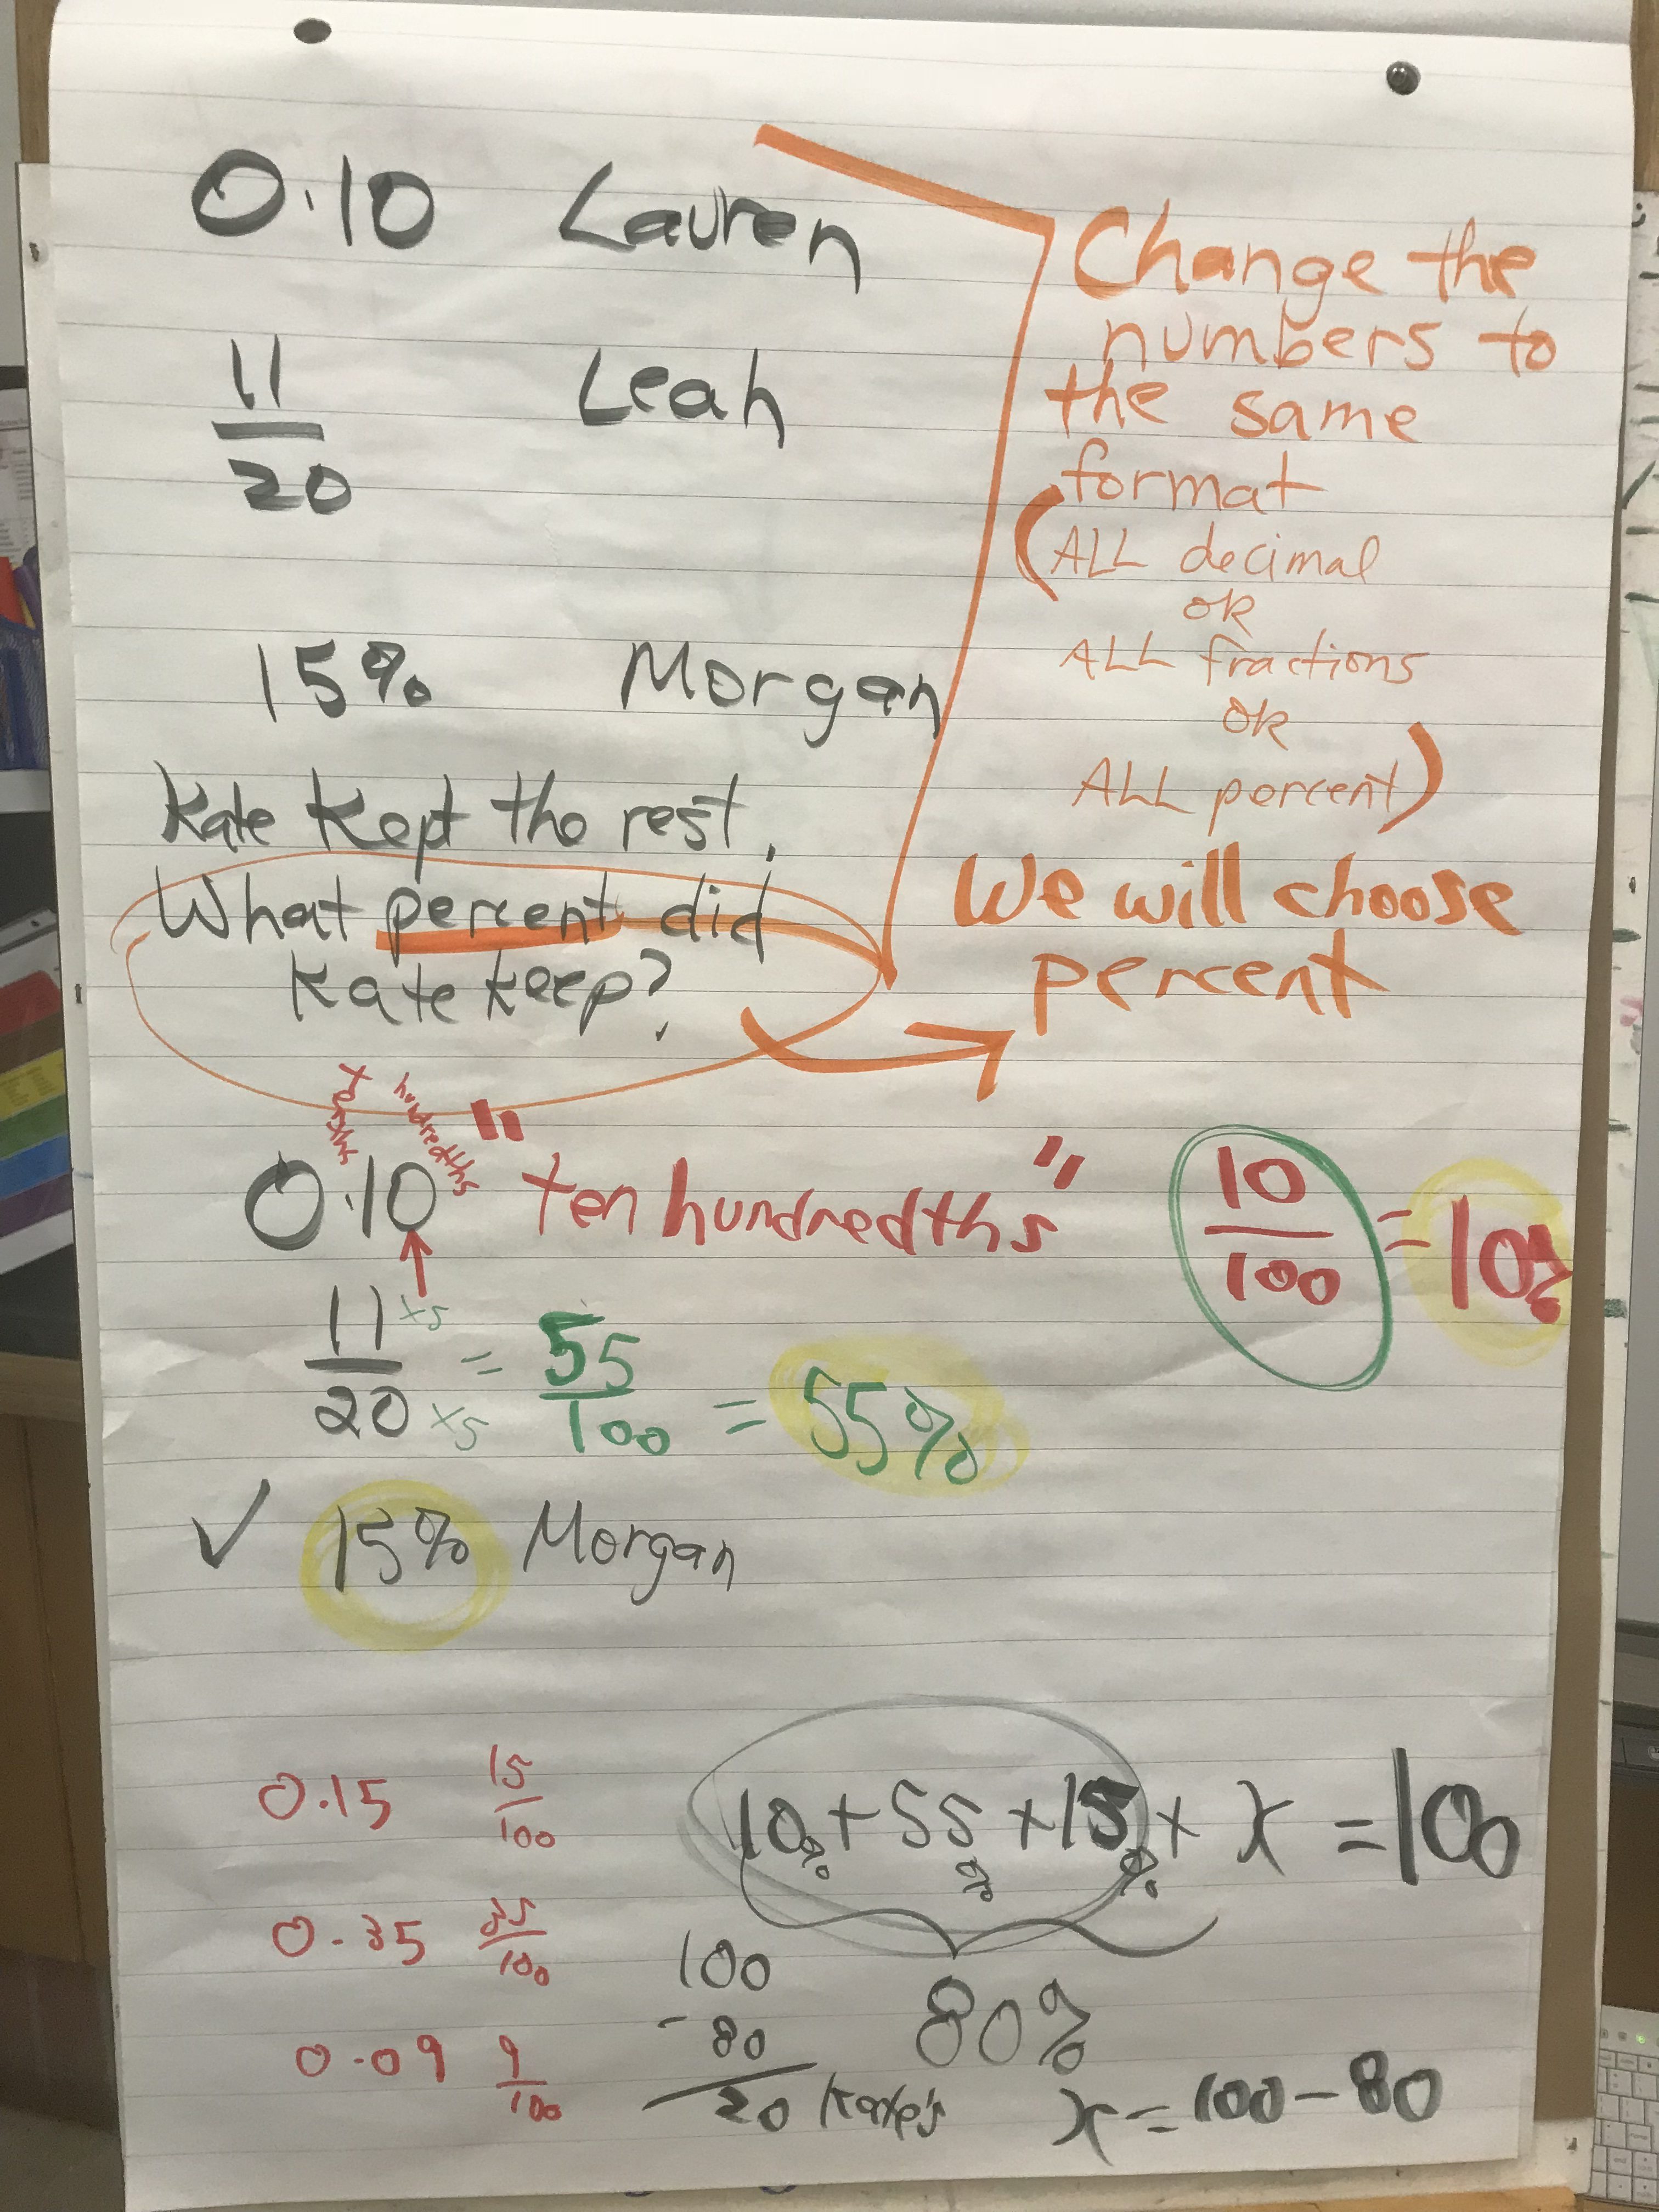 0.10 Lauren
11
20
Leah
15% Morgan
Kate Kept the rest.
What percent did
Kate keep?
Change the
numbers to
the same
format
(ALL decimal
OR
ALL fractions
OR
ALL percent)
We will choose
percent
tenths hundredths
0.10 "ten hundredths"
10
100
= 10%
11 x5
20 x5
= 55
100
= 55%
✓ 15% Morgan
0.15 15
100
0.35 35
100
0.09 9
100
10% + 55% + 15% + x = 100
80%
100
- 80
20 Kate's
x = 100 - 80